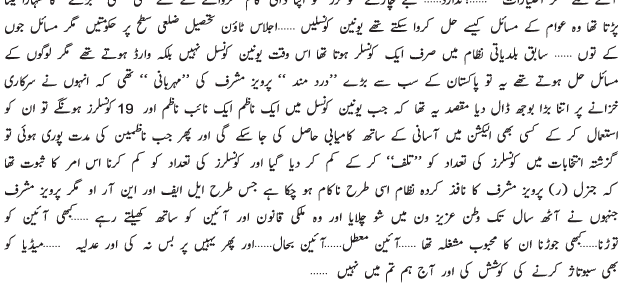 پڑتا تھا وہ عوام کے مسائل کیسے حل کروا سکتے تھے یونین کونسلیں ......اجلاس ٹاؤن تحصیل ضلعی سطح پر حکومتیں مگر مسائل جوں
کے توں ...... سابق بلدیاتی نظام میں صرف ایک کونسلر ہوتا تھا اس وقت یونین کونسل نہیں بلکہ وارڈ ہوتے تھے مگر لوگوں کے
مسائل حل ہوتے تھے یہ تو پاکستان کے سب سے بڑے ’’درد مند ’’ پرویز مشرف کی ’’مہربانی ’’ تھی کہ انہوں نے سرکاری
خزانے پر اتنا بڑا بوجھ ڈال دیا مقصد یہ تھا کہ جب یونین کونسل میں ایک ناظم ایک نائب ناظم اور 19 کونسلرز ہونگے تو ان کو
استعمال کر کے کسی بھی الیکشن میں آسانی کے ساتھ کامیابی حاصل کی جا سکے گی اور پھر جب ناظمین کی مدت پوری ہوئی تو
گزشتہ انتخابات میں کونسلرز کی تعداد کو ’’تلف‘‘ کر کے کم کر دیا گیا اور کونسلرز کی تعداد کو کم کرنا اس امر کا ثبوت تھا
کہ جنرل (ر) پرویز مشرف کا نافذ کردہ نظام اسی طرح ناکام ہو چکا ہے جس طرح ایل ایف اور این آر او مگر پرویز مشرف
جنہوں نے آٹھ سال تک وطن عزیز ون میں شو چلایا اور وہ ملکی قانون اور آئین کو ساتھ کھیلتے رہے ......کبھی آئین کو
توڑنا......کبھی جوڑنا ان کا محبوب مشغلہ تھا ......آئین معطل......آئین بحال......اور پھر یہیں پر بس نہ کی اور عدلیہ ......میڈیا کو
بھی سبوتاژ کرنے کی کوشش کی اور آج ہم تم میں نہیں ......